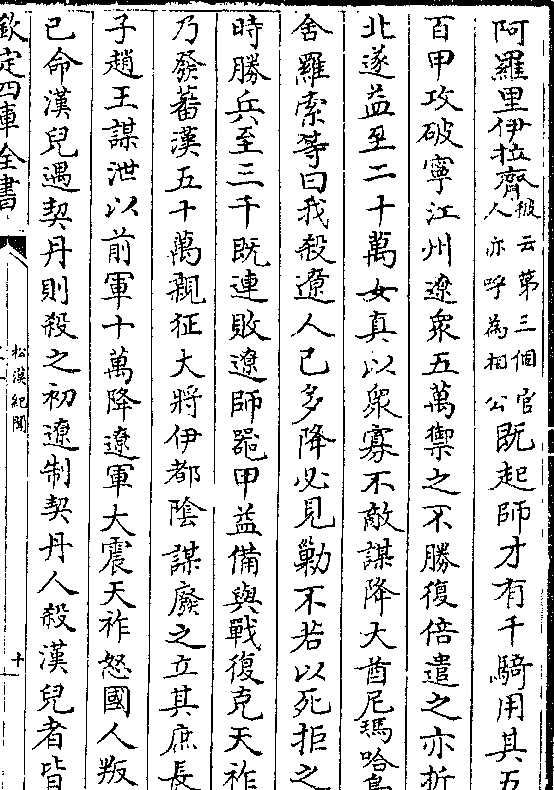 阿羅里伊拉齊彼云第三個官人亦呼為相公既起師才有千騎用其五
百甲攻破寧江州遼衆五萬禦之不勝復倍遣之亦折
北遂益至二十萬女真以衆寡不敵謀降大酋尼瑪哈烏
舍羅索等曰我殺遼人已多降必見勦不若以死拒之
時勝兵至三千既連敗遼師器甲益備與戰復克天祚
乃發蕃漢五十萬親征大將伊都陰謀廢之立其庶長
子趙王謀泄以前軍十萬降遼軍大震天祚怒國人叛
已命漢兒遇契丹則殺之初遼制契丹人殺漢兒者皆
欽定四庫全書
松漠紀聞
十